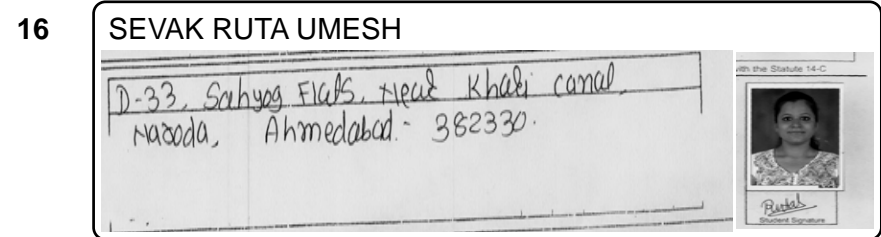 16
SEVAK RUTA UMESH
D-33, Sahyog Flats, Near Khari canal,
Naroda, Ahmedabad.- 382330.
with the Statute 14-C
Student Signature